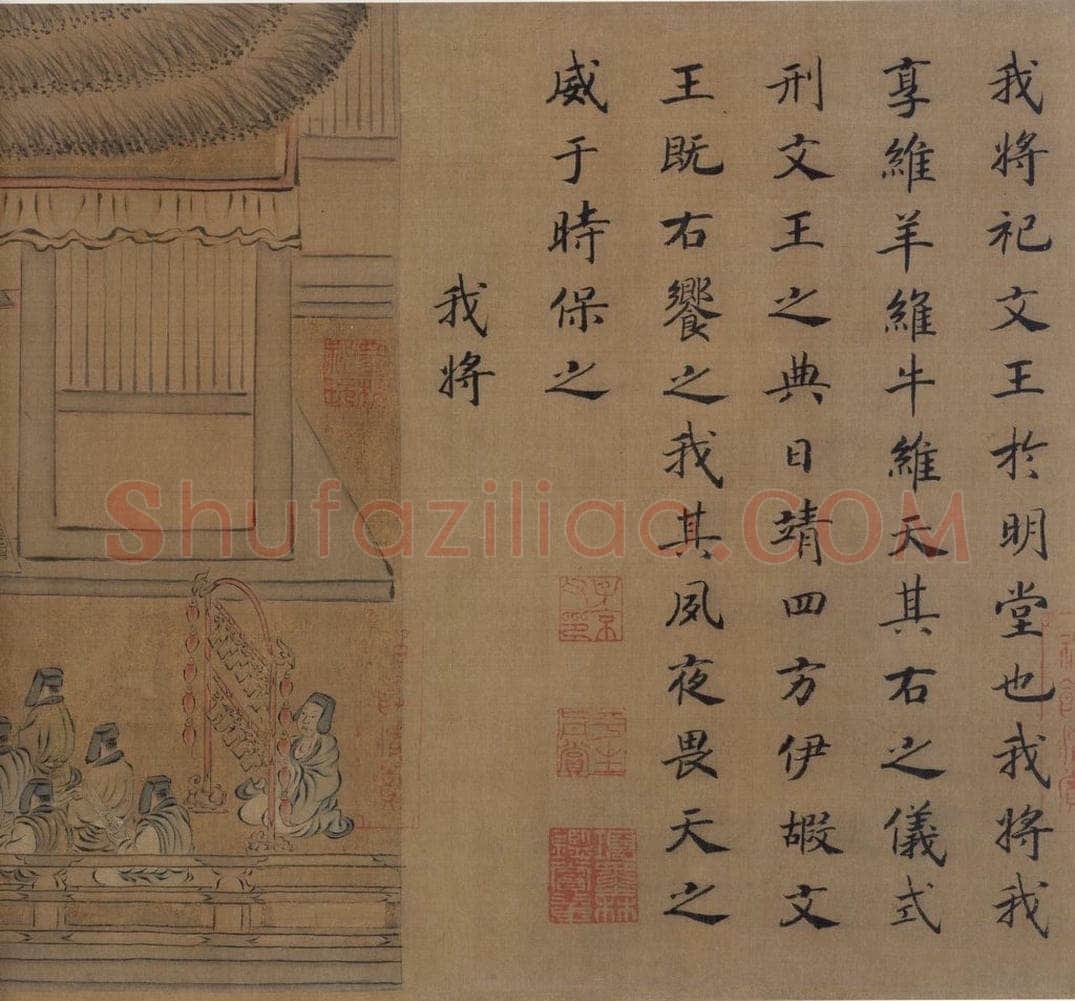 我将祀文王於明堂也我将我
享維羊維牛維天其右之儀式
刑文王之典日靖四方伊嘏文
王既右饗之我其夙夜畏天之
威于時保之
我将
Shufaziliao.COM